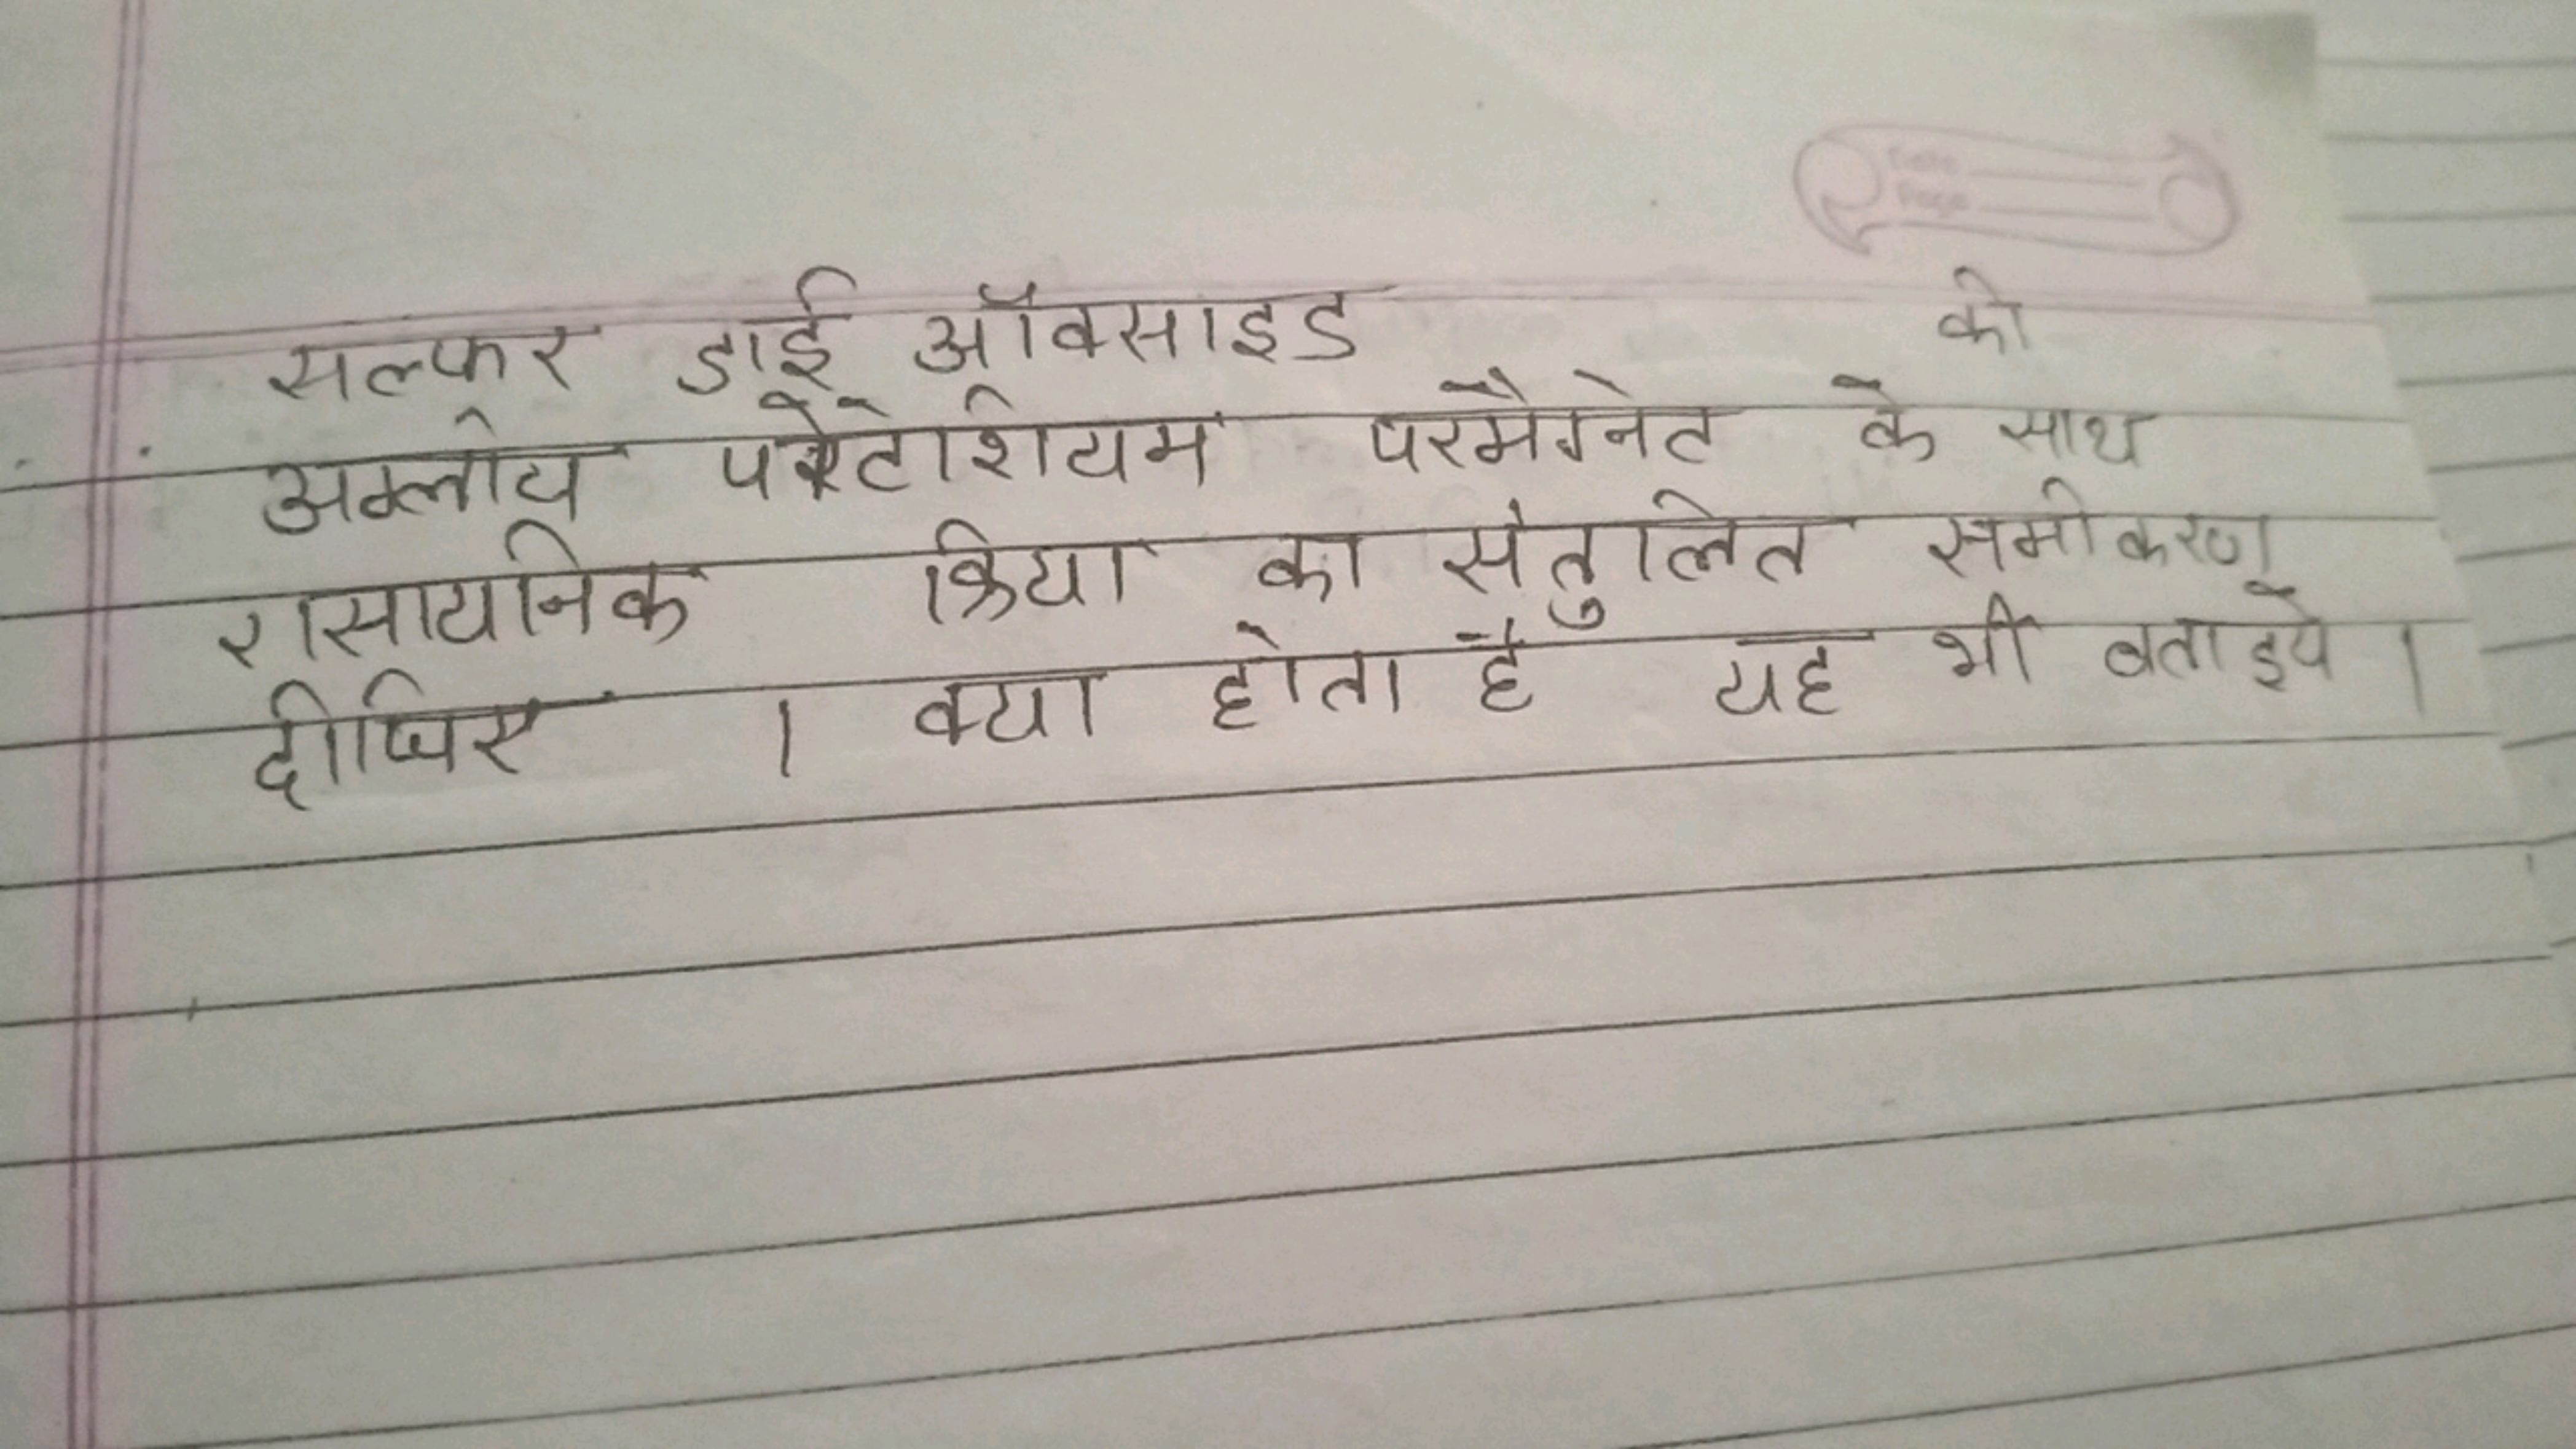 Date
Page
सल्फर डाई ऑक्साइड की
अम्लीय पोटेशियम परमैगनेट के साथ
रासायनिक क्रिया का संतुलित समीकरण
दीजिए । क्या होता है यह भी बताइये ।